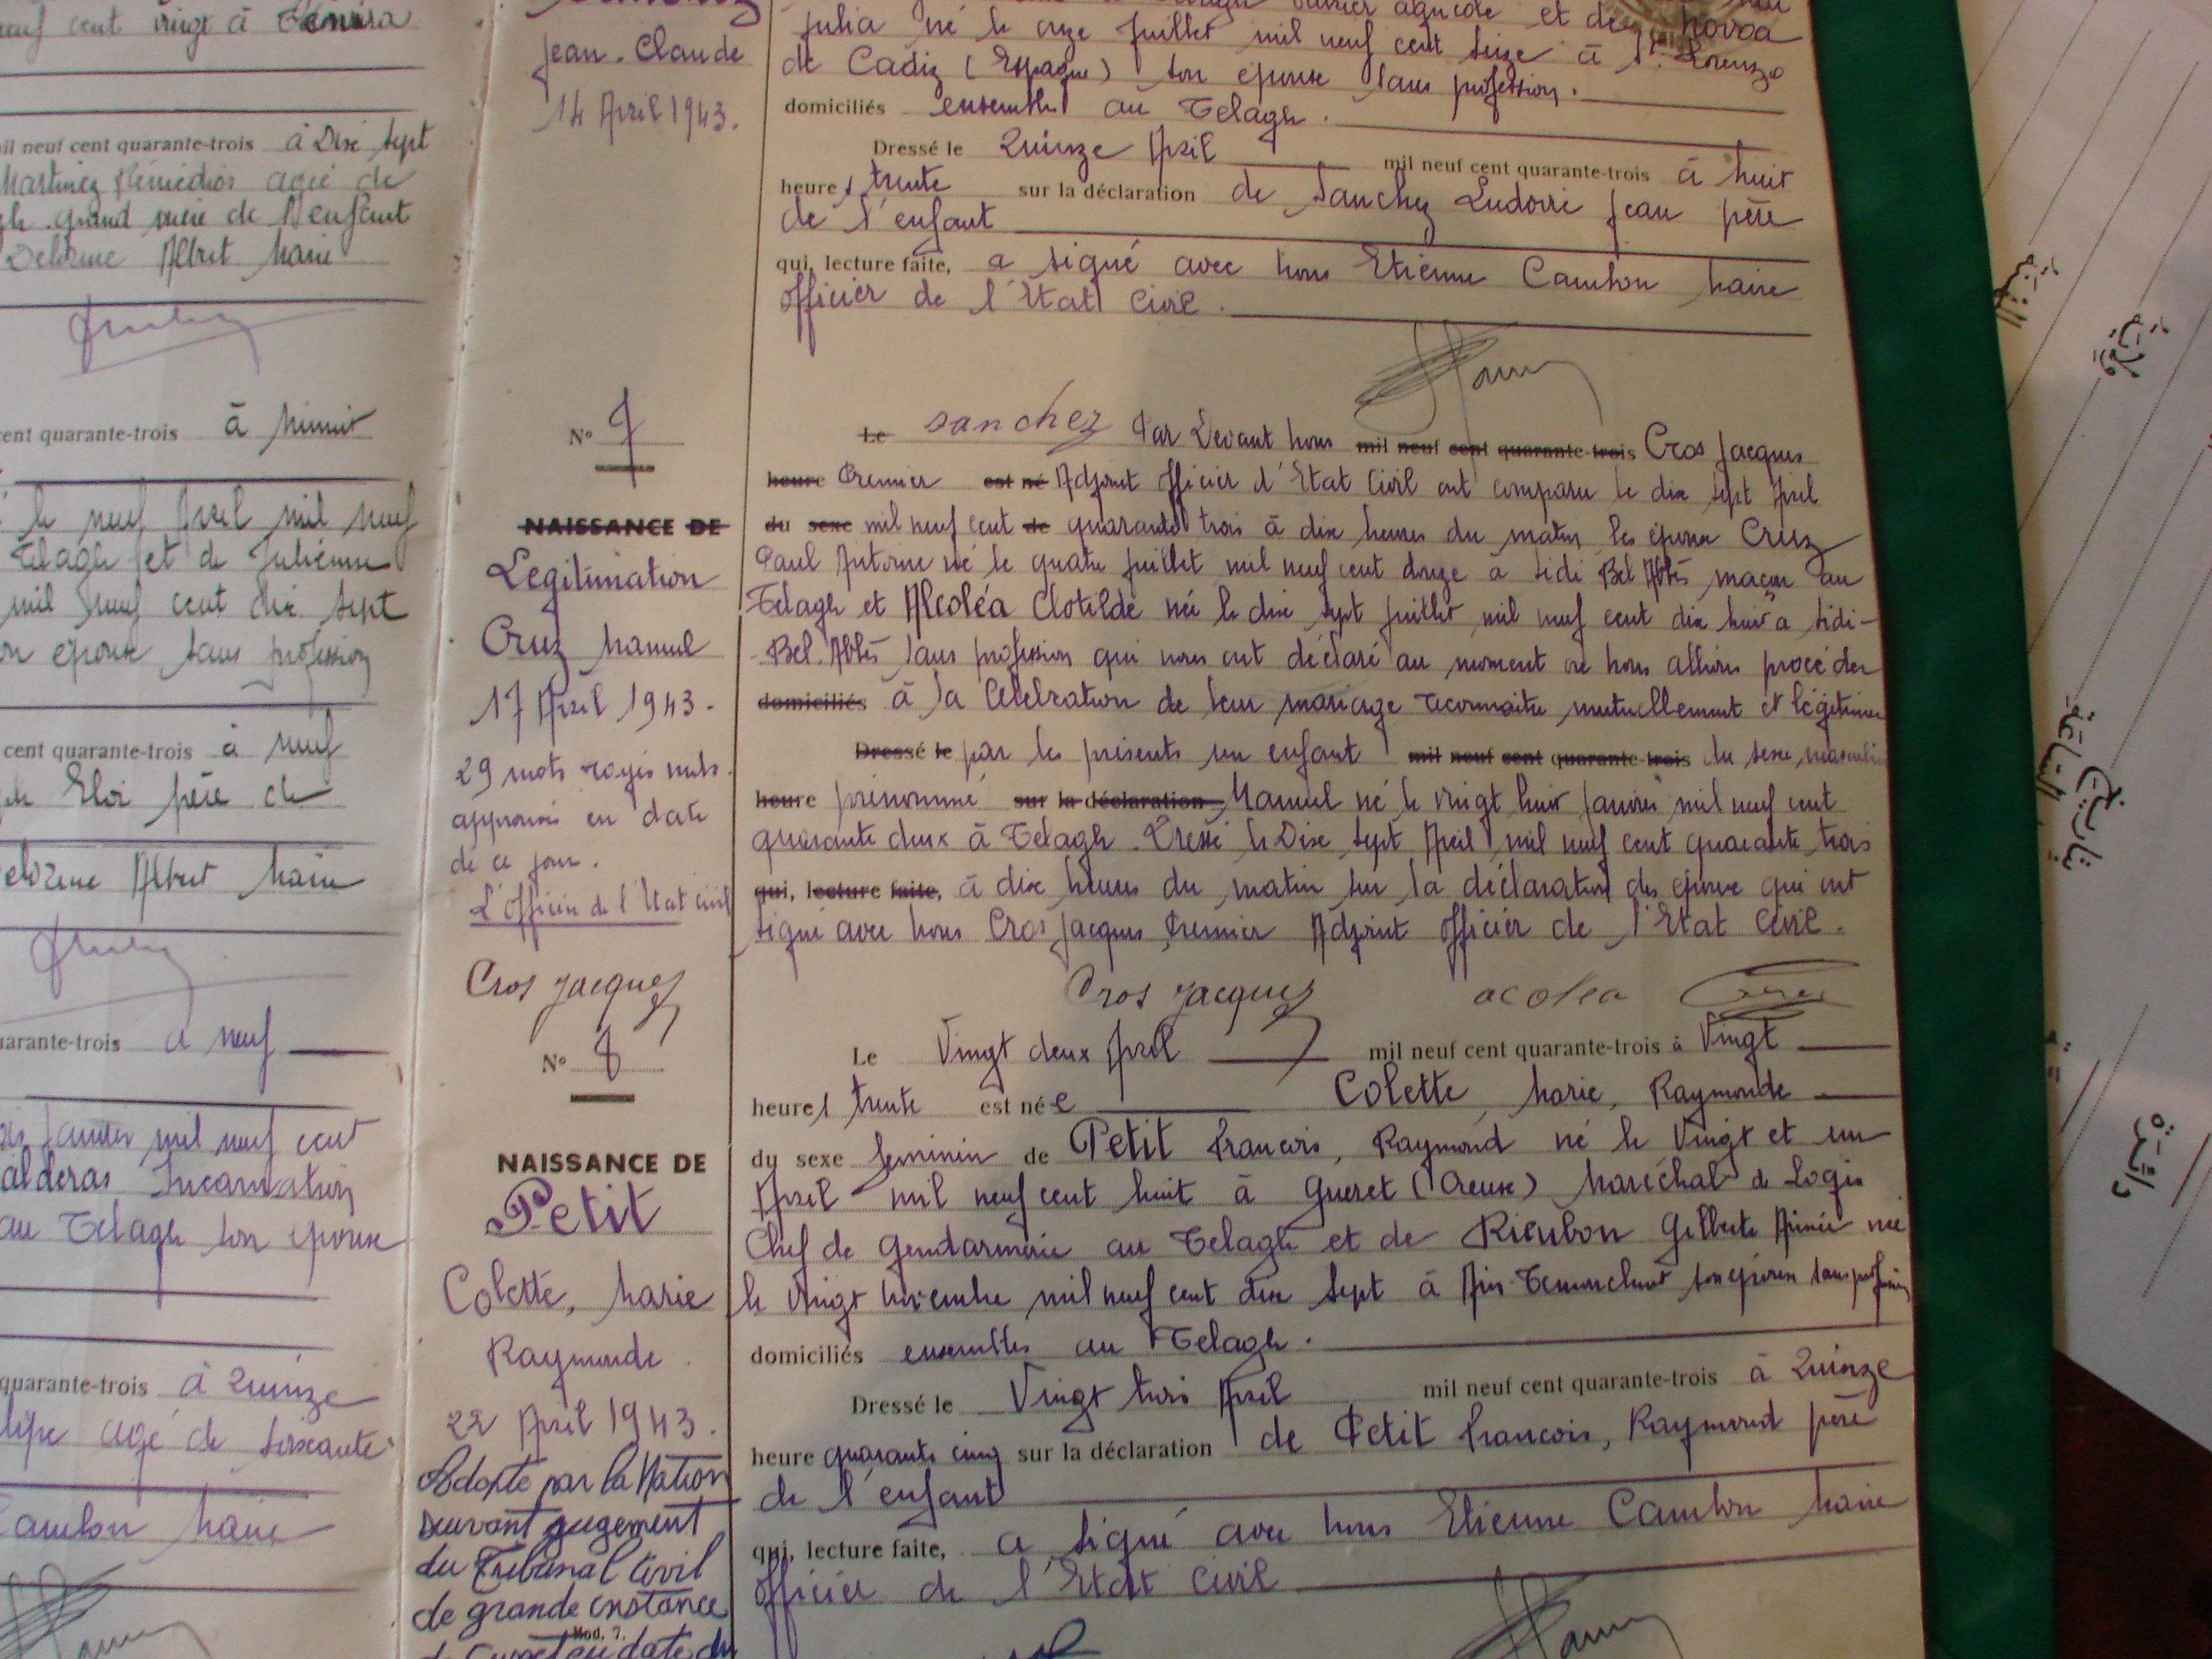 neuf cent vingt à Ténira
mil neuf cent quarante-trois à Dix sept
Martinez Rémédios agée de
grand mère de l'enfant
Delorme Albert Maire
cent quarante-trois à minuit
le neuf Avril mil neuf
Telagh et de Julienne
mil neuf cent dix sept
son épouse sans profession
cent quarante-trois à neuf
Eloi père de
Delorme Albert Maire
quarante-trois à neuf
Janvier mil neuf cent
alderas Incarnation
au Telagh son épouse
quarante-trois à Quinze
agé de soixante
Cambon Maire
Jean-Claude
14 Avril 1943.
Julia né le onze Juillet mil neuf cent seize à St. Lorenzo
de Cadiz (Espagne) son épouse sans profession.
domiciliés ensemble au Telagh.
Dressé le Quinze Avril mil neuf cent quarante-trois à huit
heures trente sur la déclaration de Sanchez Ludovic Jean père
de l'enfant
qui, lecture faite, a signé avec Nous Etienne Cambon Maire
officier de l'Etat Civil.
N° 7
NAISSANCE DE
Legitimation
Cruz Manuel
17 Avril 1943.
29 mots rayés nuls
approuvés en date
de ce jour.
L'officier de l'Etat Civil
Cros Jacques
Le sanchez Par Devant Nous mil neuf cent quarante-trois Cros Jacques
heure Premier est né Adjoint officier d'Etat Civil ont comparu le dix sept Avril
du sexe mil neuf cent de quarante trois à dix heures du matin les époux Cruz
Paul Antoine né le quatre juillet mil neuf cent douze à Sidi Bel Abbès maçon au
Telagh et Alcoléa Clotilde née le dix sept juillet mil neuf cent dix huit à Sidi-
Bel-Abbès sans profession qui nous ont déclaré au moment où Nous allions procéder
domiciliés à la Célébration de leur mariage reconnaitre mutuellement et légitimer
Dressé le par les présents un enfant mil neuf cent quarante-trois du sexe masculin
heure prénommé sur la déclaration Manuel né le vingt huit Janvier mil neuf cent
quarante deux à Telagh. Dressé le Dix sept Avril mil neuf cent quarante trois
qui, lecture faite, à dix heures du matin sur la déclaration des époux qui ont
signé avec Nous Cros Jacques Premier Adjoint officier de l'Etat Civil.
Cros Jacques acolea
N° 8
NAISSANCE DE
Petit
Colette, Marie
Raymonde.
22 Avril 1943.
Adopté par la Nation
suivant jugement
du Tribunal Civil
de grande instance
Mod. 7.
en date du
Le Vingt deux Avril mil neuf cent quarante-trois à Vingt
heures trente est née Colette, Marie, Raymonde
du sexe féminin de Petit François, Raymond né le Vingt et un
Avril mil neuf cent huit à Guéret (Creuse) Maréchal de Logis
Chef de Gendarmerie au Telagh et de Rieubon Gilberte Aimée née
le Vingt Novembre mil neuf cent dix sept à Ain-Temouchent son épouse sans profession
domiciliés ensembles au Telagh.
Dressé le Vingt trois Avril mil neuf cent quarante-trois à Quinze
heure quarante cinq sur la déclaration de Petit François, Raymond père
de l'enfant
qui, lecture faite, a signé avec Nous Etienne Cambon Maire
officier de l'Etat Civil
بتاريخ
الساعة
دائرة